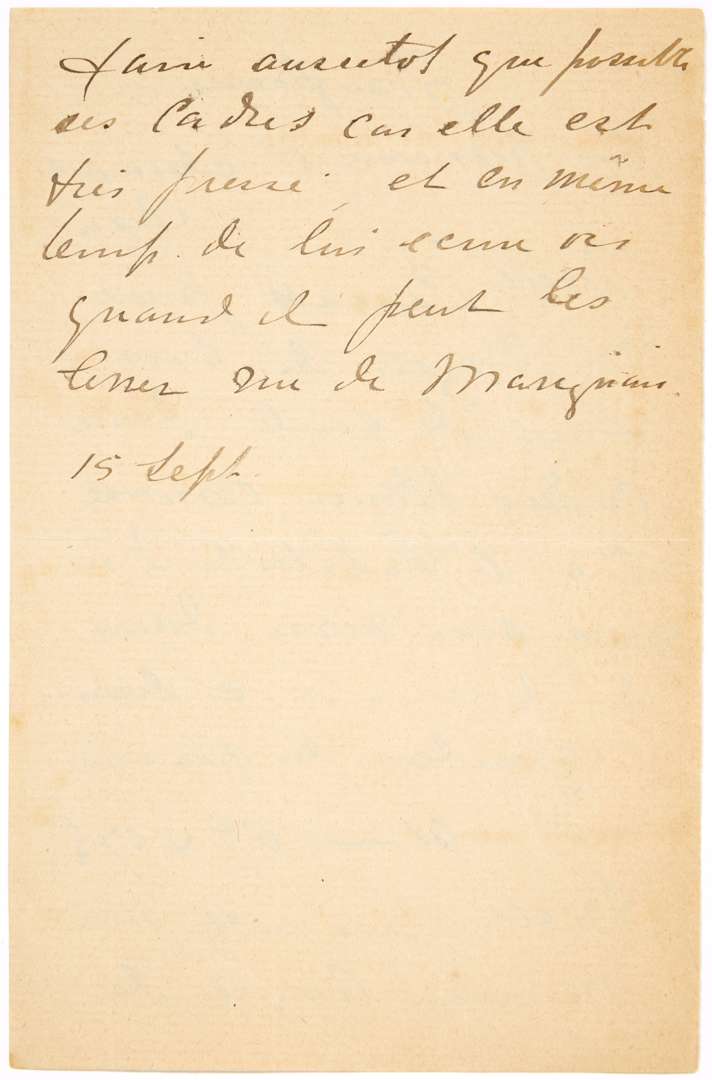 faire aussitot que possible
ses Cadres car elle est
très pressé, et en même
temp. de lui ecrire
quand il peut les
laisser rue de Marignan.
15 Sept.